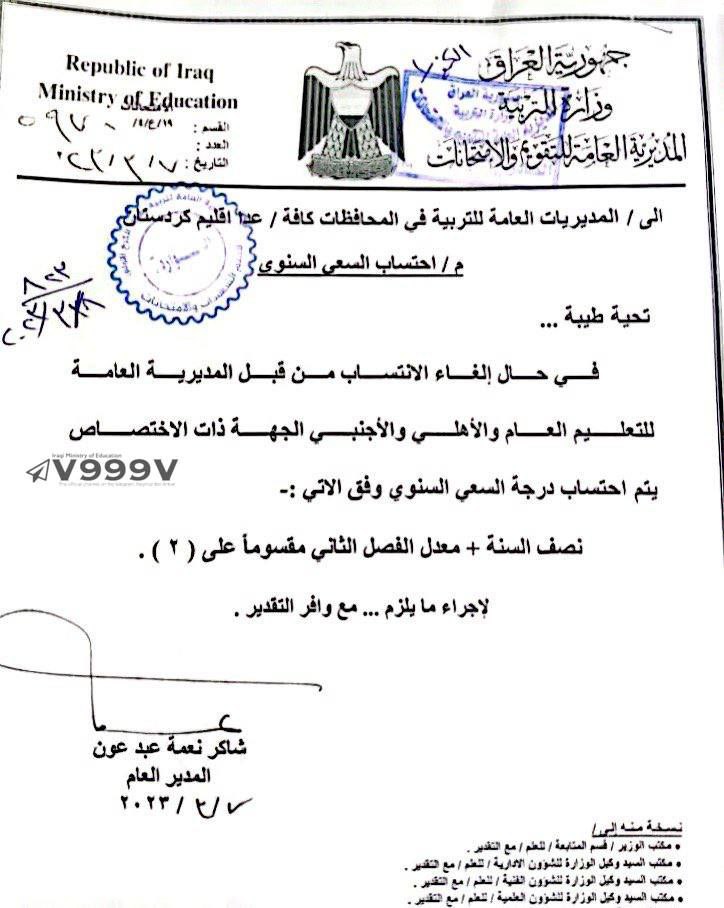 جمهورية العراق
وزارة التربية
المديرية العامة للتقويم والامتحانات
Republic of Iraq
Ministry of Education
القسم : الامتحانات
العدد :
التاريخ :
الى / المديريات العامة للتربية في المحافظات كافة / عدا اقليم كردستان
م / احتساب السعي السنوي
تحية طيبة ...
في حال إلغاء الانتساب من قبل المديرية العامة
للتعليم العام والأهلي والأجنبي الجهة ذات الاختصاص
يتم احتساب درجة السعي السنوي وفق الاتي :-
نصف السنة + معدل الفصل الثاني مقسوماً على ( ٢ ) .
لإجراء ما يلزم ... مع وافر التقدير .
Iraqi Ministry of Education
V999V
شاكر نعمة عبد عون
المدير العام
٢٠٢٣ / ٢ / ٧
نسخة منه إلى /
• مكتب الوزير / قسم المتابعة / للعلم / مع التقدير .
• مكتب السيد وكيل الوزارة للشؤون الادارية / للعلم / مع التقدير .
• مكتب السيد وكيل الوزارة للشؤون الفنية / للعلم / مع التقدير .
• مكتب السيد وكيل الوزارة للشؤون العلمية / للعلم / مع التقدير .